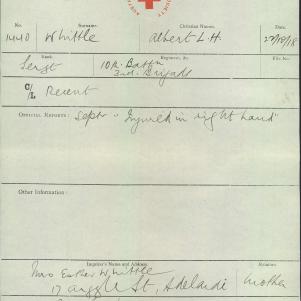 No. Surname. Christian Names. Date.
1440 Whittle Albert L.H. 22/10/18
Rank. Regiment, &c. File No.
Sergt 10th Battn
3rd Brigade
C/L Recent
OFFICIAL REPORTS: Sept "Injured in right hand"
Other Information:
Inquirer's Name and Address. Relation.
Mrs Esther Whittle
17 Argyle St, Adelaide Mother